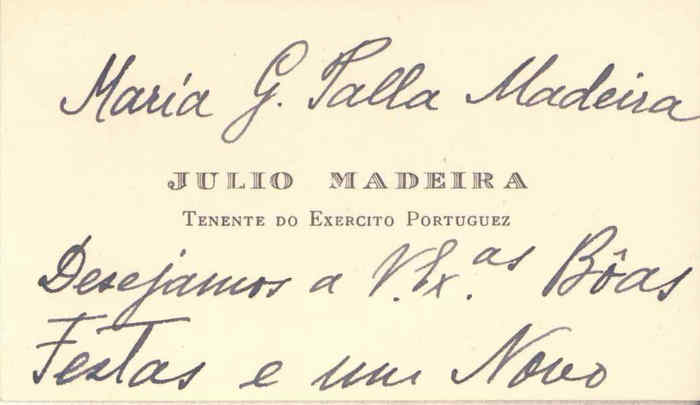 Maria G. Palla Madeira
JULIO MADEIRA
TENENTE DO EXERCITO PORTUGUEZ
Desejamos a V.Ex.as Bôas
Festas e um Novo